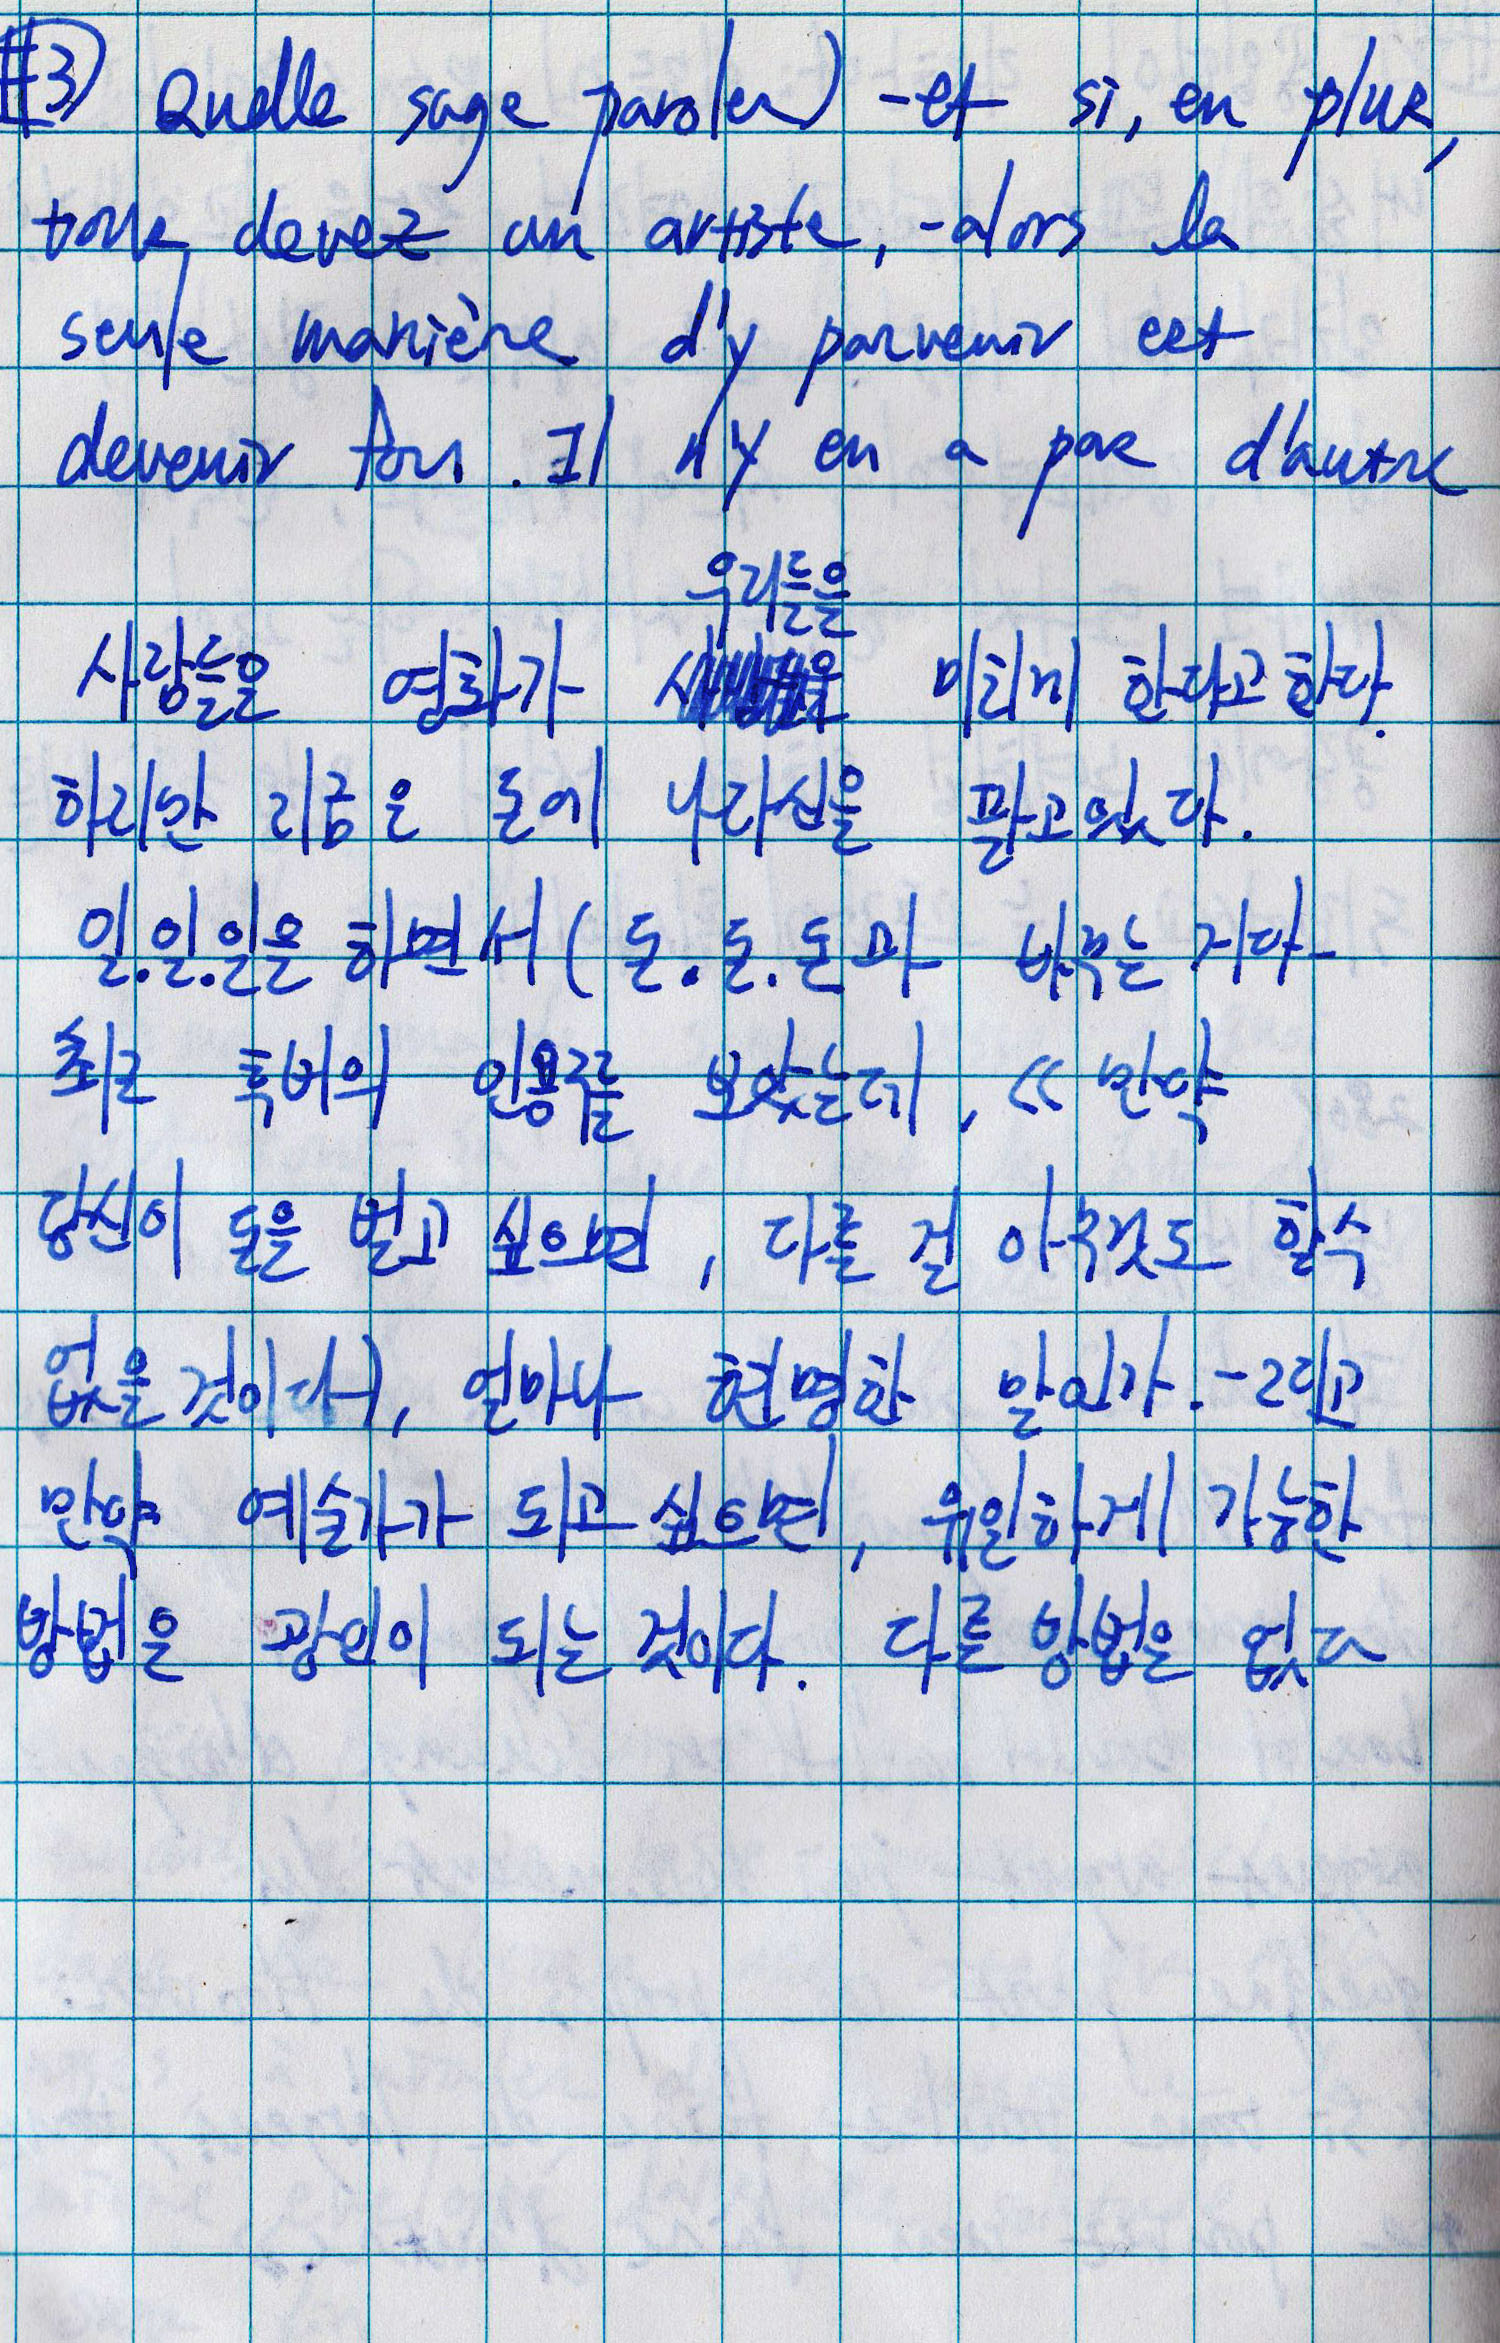 #3) Quelle sage paroles) - et si, en plus,
vous devez un artiste, - alors la
seule manière d'y parvenir est
devenir fou. Il n'y en a pas d'autre
우리들을
사람들을 영화가 미치게 한다고 한다.
하지만 지금은 돈에 나라신을 팔고있다.
일.일.일을 하면서 (돈.돈.돈과 바꾸는 거다
최근 흑버의 인용구를 보았는데, << 만약
당신이 돈을 벌고 싶으면, 다른 걸 아무것도 할수
없을 것이다), 얼마나 현명한 말인가. - 그리고
만약 예술가가 되고 싶으면, 유일하게 가능한
방법은 광인이 되는 것이다. 다른 방법은 없다